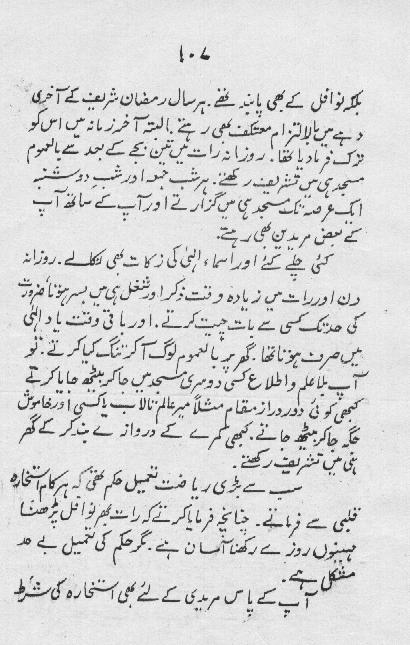 ۱۰۷
بلکہ نوافل کے بھی پابند تھے۔ ہر سال رمضان شریف کے آخری
دہے میں بالالتزام معتکف بھی رہتے۔ البتہ آخر زمانہ میں اس کو
ترک فرما دیا تھا۔ روزانہ رات میں تین بجے کے بعد سے بالعموم
مسجد ہی میں تشریف رکھتے۔ ہر شب جمعہ اور شب دوشنبہ
ایک عرصہ تک مسجد ہی میں گزارتے اور آپ کے ساتھ آپ
کے بعض مریدین بھی رہتے۔
کئی چلے کئے اور اسماء الہٰی کی زکات بھی نکالے۔ روزانہ
دن اور رات میں زیادہ وقت ذکر اور شغل ہی میں بسر ہوتا، ضرورت
کی حد تک کسی سے بات چیت کرتے۔ اور باقی وقت یاد الہٰی
میں صرف ہوتا تھا۔ گھر پر بالعموم لوگ آ کر تنگ کیا کرتے۔ تو
آپ بلا علم و اطلاع کسی دوسری مسجد میں جا کر بیٹھ جایا کرتے
کبھی کوئی دور دراز مقام مثلاً میر عالم تالاب یا کسی اور خاموش
جگہ جا کر بیٹھ جاتے، کبھی کمرے کے دروازے بند کر کے گھر
ہی میں تشریف رکھتے۔
سب سے بڑی ریاضت تعمیل حکم تھی کہ ہر کام استخارہ
قلبی سے فرماتے۔ چنانچہ فرمایا کرتے کہ رات بھر نوافل پڑھنا
مہینوں روزے رکھنا آسان ہے۔ مگر حکم کی تعمیل بے حد
مشکل ہے۔
آپ کے پاس مریدی کے لئے بھی استخارہ کی شرط